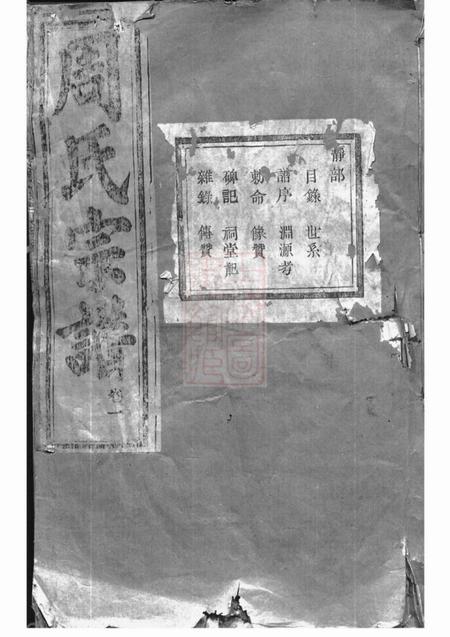 周氏宗譜
卷一
靜部
目錄 世系
譜序 淵源考
勅命 像贊
碑記 祠堂記
雜錄 傳贊